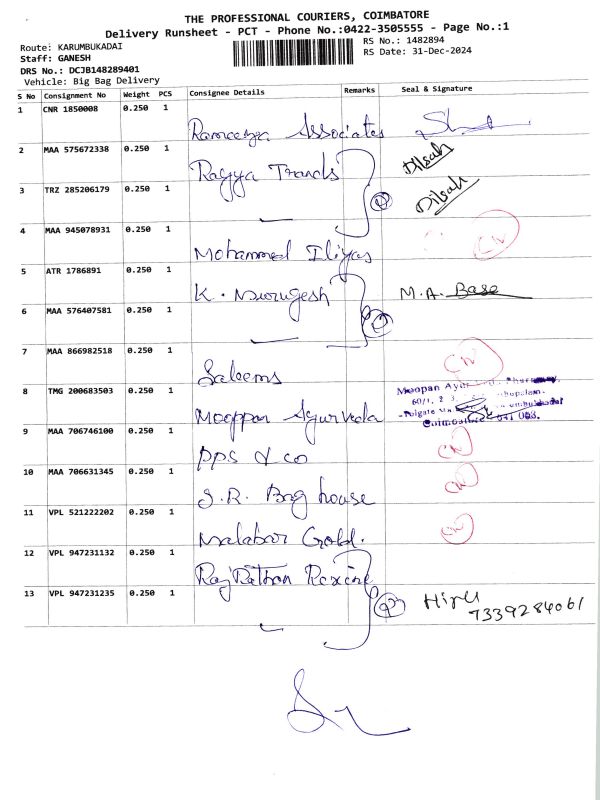 THE PROFESSIONAL COURIERS, COIMBATORE
Delivery Runsheet - PCT - Phone No.:0422-3505555 - Page No.:1
Route: KARUMBUKADAI
RS No.: 1482894
Staff: GANESH
RS Date: 31-Dec-2024
DRS No.: DCJB148289401
Vehicle: Big Bag Delivery
S No Consignment No Weight PCS Consignee Details Remarks Seal & Signature
1 CNR 1850008 0.250 1 Associates
2 MAA 575672338 0.250 1 Rajya Trands Dilsah
3 TRZ 285206179 0.250 1 Dilsah
4 MAA 945078931 0.250 1 Mohammed Iliyas CN
5 ATR 1786891 0.250 1 K. Murugesh M.A. Base
6 MAA 576407581 0.250 1
7 MAA 866982518 0.250 1 Saleems CN
8 TMG 200683503 0.250 1 Mooppan Ayurveda
Moopan
60/1, 2 3,
Coimbatore - 641 008.
9 MAA 706746100 0.250 1 PPS & co CN
10 MAA 706631345 0.250 1 S.R. Bag house CN
11 VPL 521222202 0.250 1 Malabar Gold. CN
12 VPL 947231132 0.250 1 Raj Rathan Rexine
13 VPL 947231235 0.250 1 Hiru
7339284061